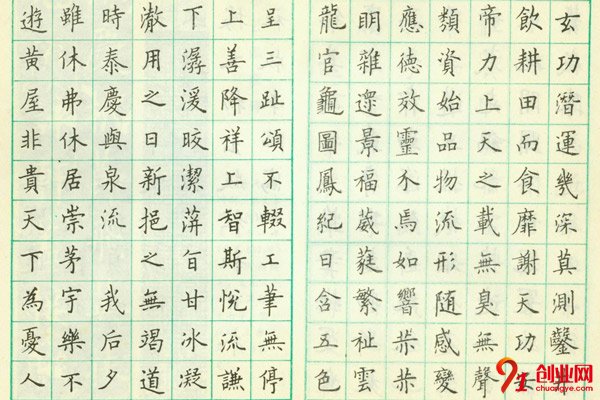 玄功潛運幾深莫測鑿井
飲耕田而食靡謝天功安
帝力上天之載無臭無聲
類資始品物流形隨感變
應德效靈介焉如響赫赫
眀雜遝景福葳蕤繁祉雲
龍官龜圖鳳紀日含五色
呈三趾頌不輟工筆無停
上善降祥上智斯悅流謙
下潺湲晈潔蓱旨甘冰凝
澈用之日新挹之無竭道
時泰慶與泉流我后夕
雖休弗休居崇茅宇樂不
遊黃屋非貴天下為憂人
创业网
chuangye.com